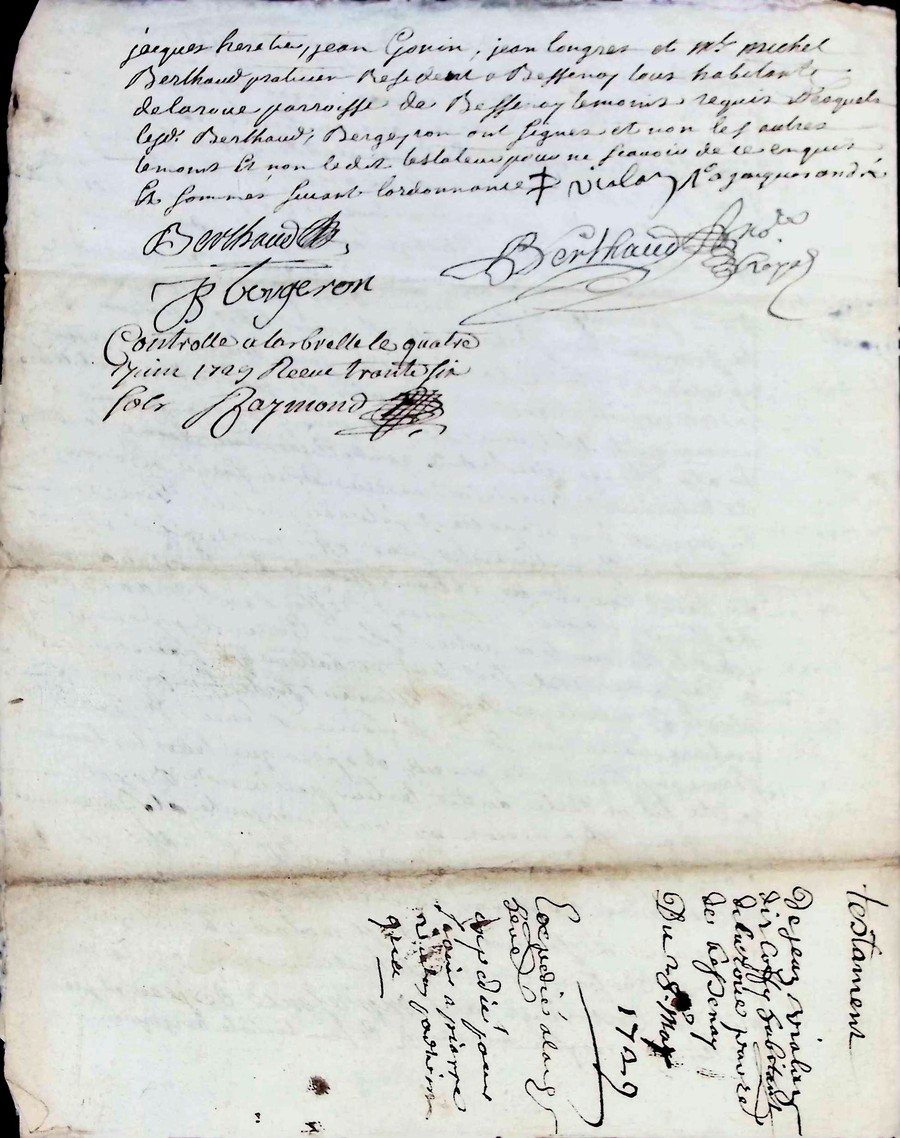 jacques heretie, jean Gonin, jean longres et mtr michel
Berthaud praticien Resident a Bessenay tous habitants
de laroue parroisse de Bessenay temoins requis desquels
lesd. Berthaud, Bergeyron ont signes et non les autres
temoins Et non ledit testateur pour ne scavoir de ce enquis
Et sommes suivant lordonnance violay jacques andré
Berthaud
B bergeron
Berthaud no.re Royal
Controlle a larbrelle le quatre
juin 1729 Receu trante six
sols Raymond
testament
De jean violay
dit Coffy habitant
de laroue parroi
de Bessenay
Du 28. May
1729
Expedié a lad.
expedié pour
pierre
violay